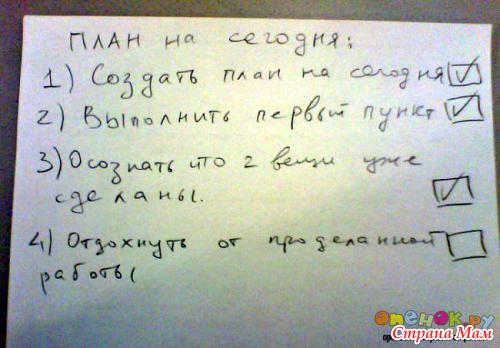 ПЛАН на сегодня:
1) Создать план на сегодня
2) Выполнить первый пункт
3) Осознать что 2 вещи уже
сделаны.
4) Отдохнуть от проделанной
работы
опенок.ру
Страна Мам